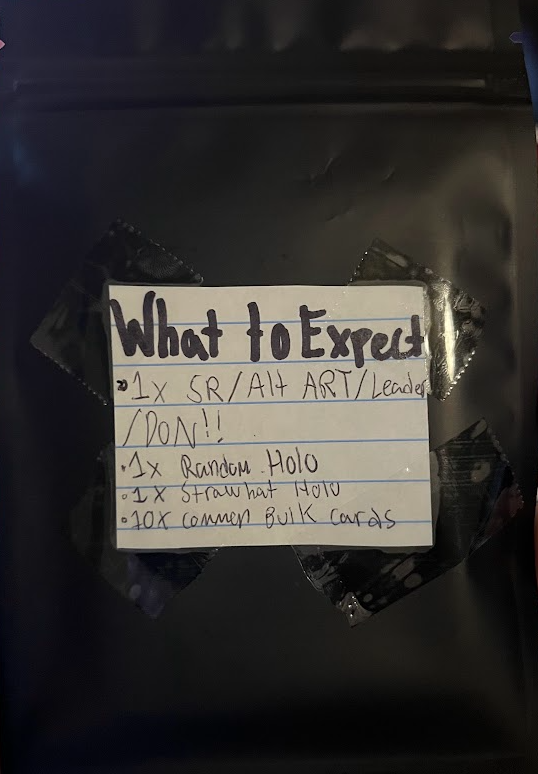 What to Expect
•1x SR/Alt ART/Leader
/DON!!
•1x Random Holo
•1x Strawhat Holo
•10x common Bulk cards